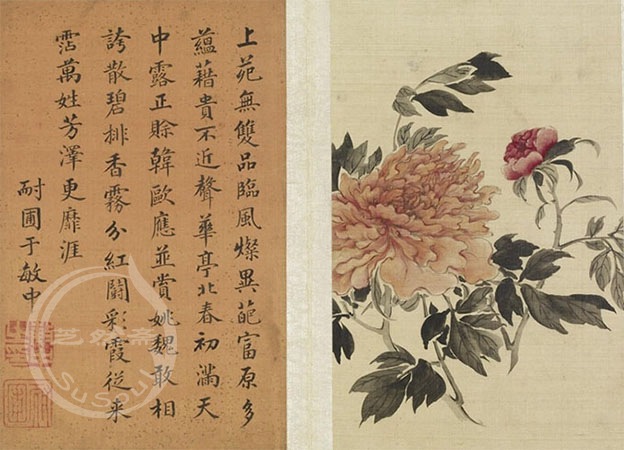 上苑無雙品臨風燦異葩富原多
蘊藉貴不近聲華亭北春初滿天
中露正賒韓歐應並賞姚魏敢相
誇散碧排香霧分紅鬪彩霞從来
霑萬姓芳澤更靡涯
耐圃于敏中